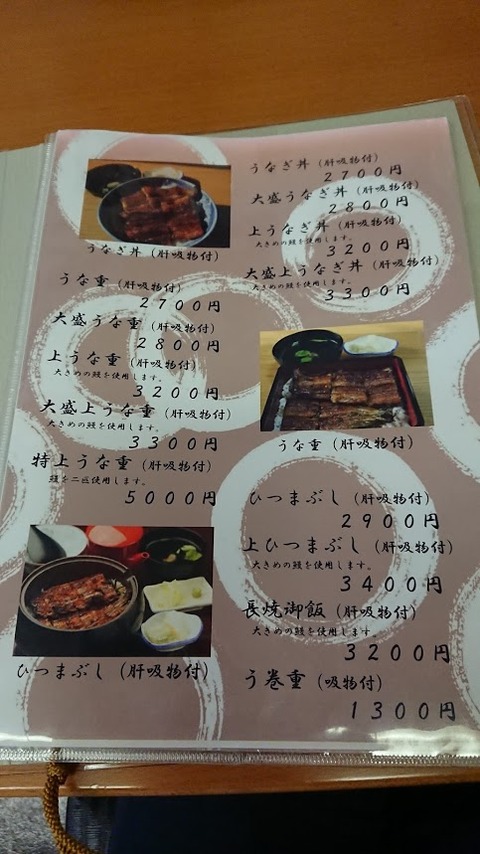 うなぎ丼（肝吸物付）
２７００円
大盛うなぎ丼（肝吸物付）
２８００円
上うなぎ丼（肝吸物付）
大きめの鰻を使用します。
３２００円
大盛上うなぎ丼（肝吸物付）
大きめの鰻を使用します。
３３００円
うなぎ丼（肝吸物付）
うな重（肝吸物付）
２７００円
大盛うな重（肝吸物付）
２８００円
上うな重（肝吸物付）
大きめの鰻を使用します。
３２００円
大盛上うな重（肝吸物付）
大きめの鰻を使用します。
３３００円
特上うな重（肝吸物付）
鰻を二匹使用します。
５０００円
うな重（肝吸物付）
ひつまぶし（肝吸物付）
２９００円
上ひつまぶし（肝吸物付）
大きめの鰻を使用します。
３４００円
長焼御飯（肝吸物付）
大きめの鰻を使用します
３２００円
う巻重（吸物付）
１３００円
ひつまぶし（肝吸物付）